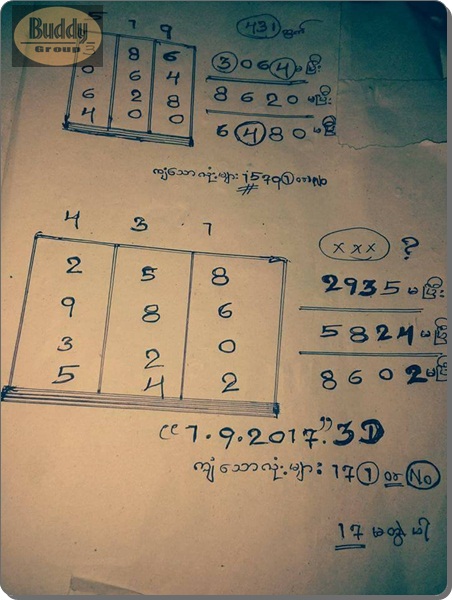 Buddy
Group
7 9
431 ထွက်
8 6
3064 မပြီး
0 6 4
6 2 8
8620 မပြီး
4 0 0
6480
ကျံသောလုံးများ 1579 ① or No
4 3 7
xxx ?
2 5 8
2935 မပြီး
9 8 6
5824
3 2 0
5 4 2
8602
"1.9.2017" 3D
ကျံသောလုံးများ 17 ① or No
17 မတွဲပါ